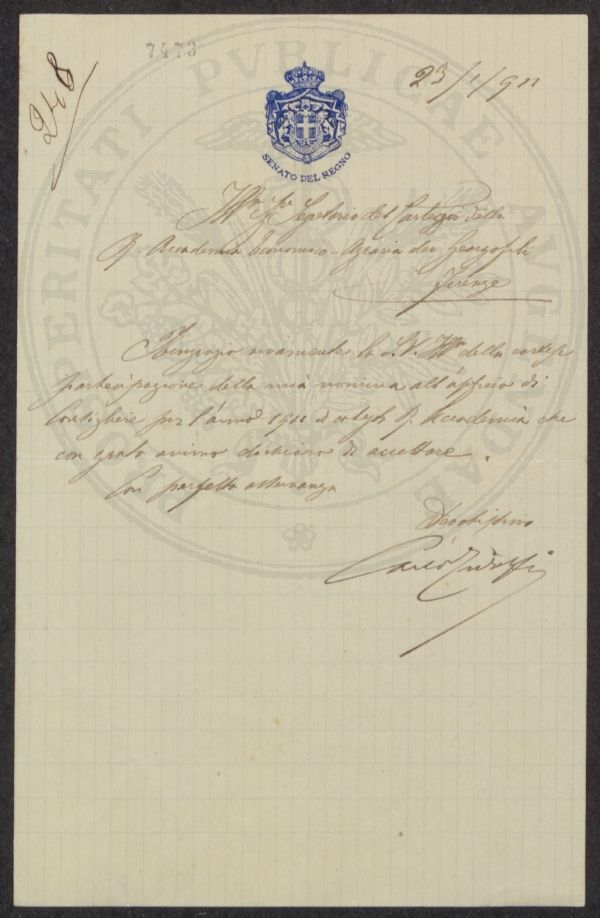 7473
248
23/1/911
SENATO DEL REGNO
PROSPERITATI PVBLICAE AVGENDAE
Ill.mo Sig.re Segretario del Carteggio della
R. Accademia Economico-Agraria dei Georgofili
Firenze
Ringrazio vivamente la S.V. Ill.ma della cortese
partecipazione della mia nomina all'ufficio di
Consigliere per l'anno 1911 di codesta R. Accademia che
con grato animo dichiaro di accettare.
Con perfetta osservanza
Devotissimo
Carlo Ridolfi